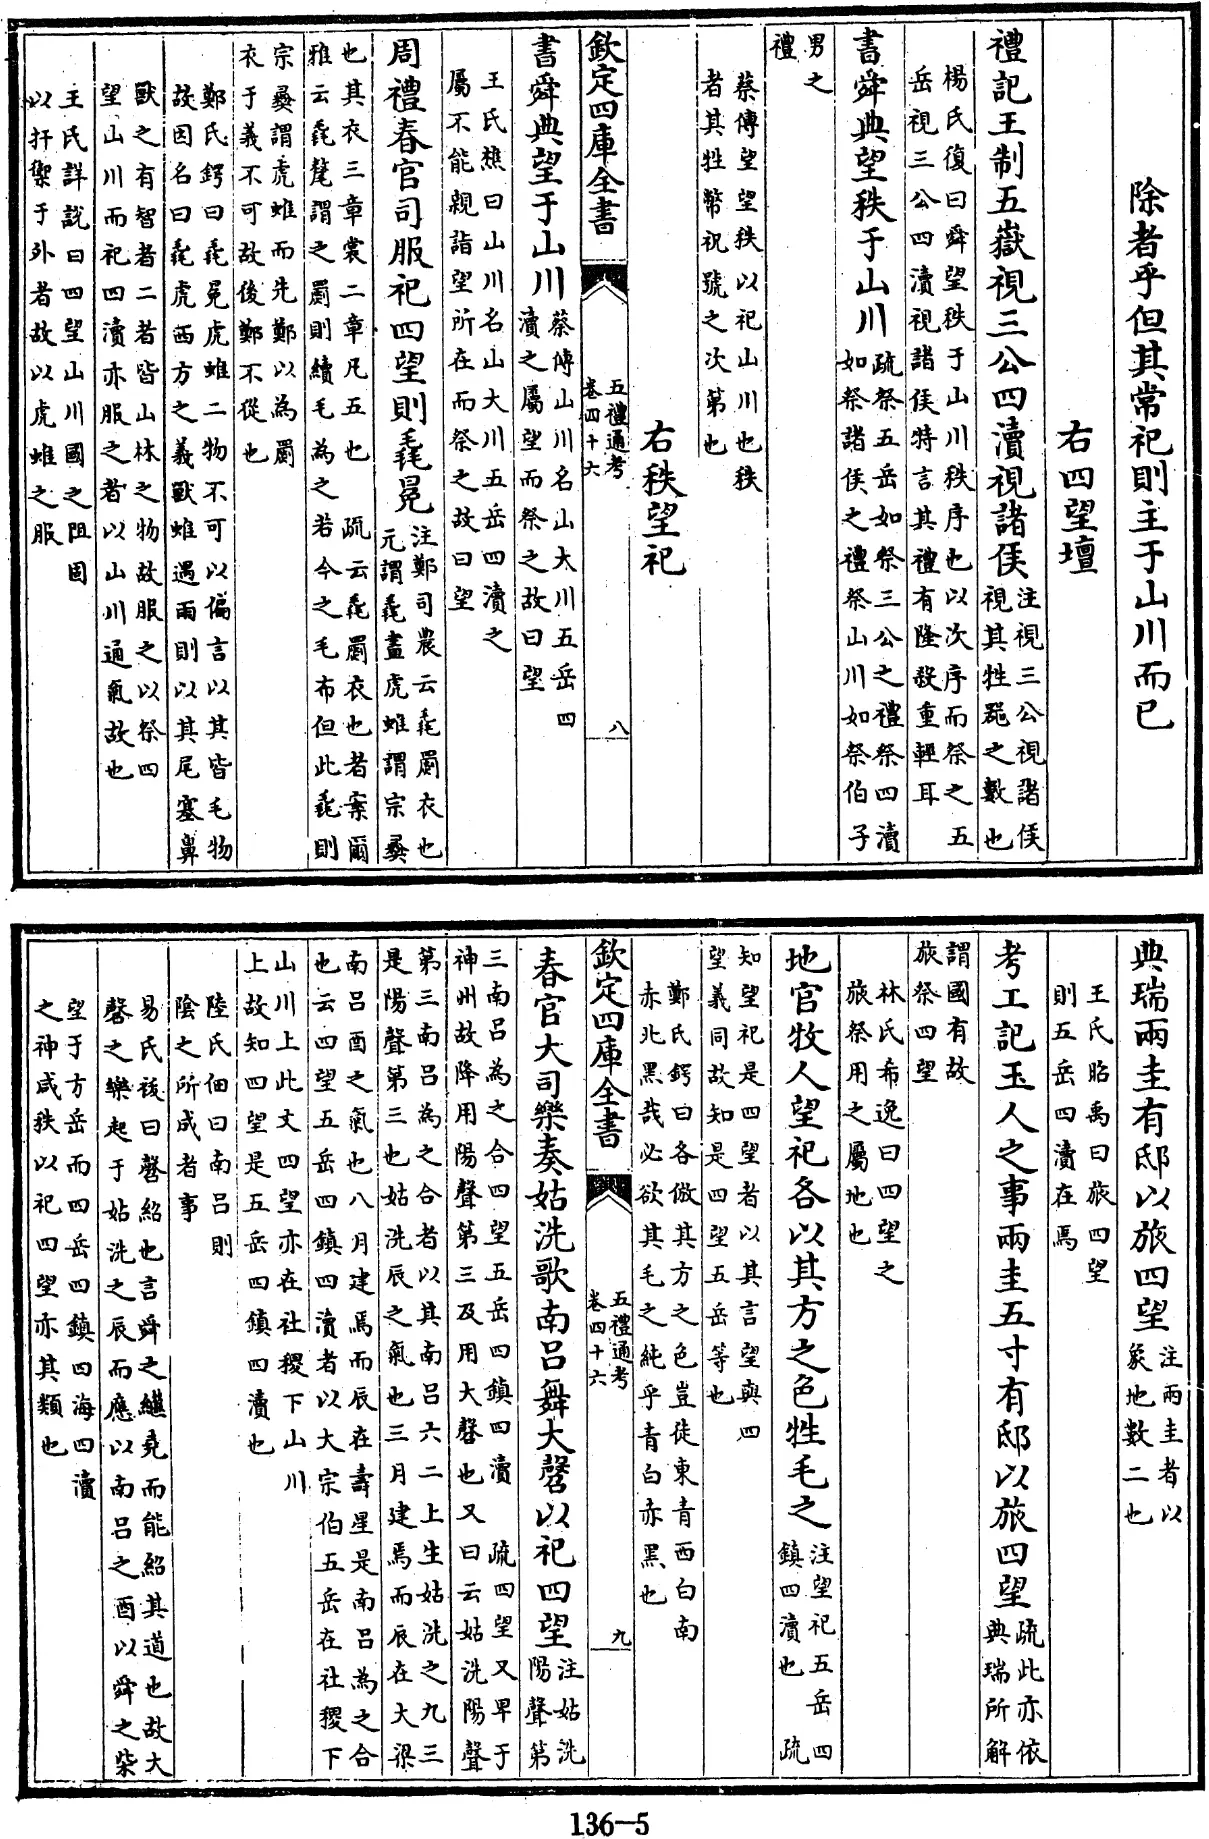 除者乎但其常祀則主于山川而已
右四望壇
禮記王制五嶽視三公四瀆視諸侯注視三公視諸侯
視其牲器之數也
楊氏復曰舜望秩于山川秩序也以次序而祭之五
岳視三公四瀆視諸侯特言其禮有隆殺重輕耳
書舜典望秩于山川疏祭五岳如祭三公之禮祭四瀆
如祭諸侯之禮祭山川如祭伯子
男之
禮
蔡傳望望秩以祀山川也秩
者其牲幣祝號之次第也
右秩望祀
欽定四庫全書
五禮通考
卷四十六
八
書舜典望于山川蔡傳山川名山大川五岳四
瀆之屬望而祭之故曰望
王氏樵曰山川名山大川五岳四瀆之
屬不能親詣望所在而祭之故曰望
周禮春官司服祀四望則毳冕注鄭司農云毳罽衣也
元謂毳畫虎蜼謂宗彝
也其衣三章裳二章凡五也 疏云毳罽衣也者案爾
雅云毳氂謂之罽則續毛為之若今之毛布但此毳則
宗彝謂虎蜼而先鄭以為罽
衣于義不可故後鄭不從也
鄭氏鍔曰毳冕虎蜼二物不可以偏言以其皆毛物
故因名曰毳虎西方之義獸蜼遇雨則以其尾塞鼻
獸之有智者二者皆山林之物故服之以祭四
望山川而祀四瀆亦服之者以山川通氣故也
王氏詳説曰四望山川國之阻固
以扞禦于外者故以虎蜼之服
典瑞兩圭有邸以旅四望注兩圭者以
象地數二也
王氏昭禹曰旅四望
則五岳四瀆在焉
考工記玉人之事兩圭五寸有邸以旅四望疏此亦依
典瑞所解
謂國有故
旅祭四望
林氏希逸曰四望之
旅祭用之屬地也
地官牧人望祀各以其方之色牲毛之注望祀五岳四
鎮四瀆也 疏
知望祀是四望者以其言望與四
望義同故知是四望五岳等也
鄭氏鍔曰各倣其方之色豈徒東青西白南
赤北黑哉必欲其毛之純乎青白赤黑也
欽定四庫全書
五禮通考
卷四十六
九
春官大司樂奏姑洗歌南呂舞大磬以祀四望注姑洗
陽聲第
三南呂為之合四望五岳四鎮四瀆 疏四望又卑于
神州故降用陽聲第三及用大磬也又曰云姑洗陽聲
第三南呂為之合者以其南呂六二上生姑洗之九三
是陽聲第三也姑洗辰之氣也三月建焉而辰在大梁
南呂酉之氣也八月建焉而辰在壽星是南呂為之合
也云四望五岳四鎮四瀆者以大宗伯五岳在社稷下
山川上此文四望亦在社稷下山川
上故知四望是五岳四鎮四瀆也
陸氏佃曰南呂則
陰之所成者事
易氏祓曰磬紹也言舜之繼堯而能紹其道也故大
磬之樂起于姑洗之辰而應以南呂之酉以舜之柴
望于方岳而四岳四鎮四海四瀆
之神咸秩以祀四望亦其類也
136-5